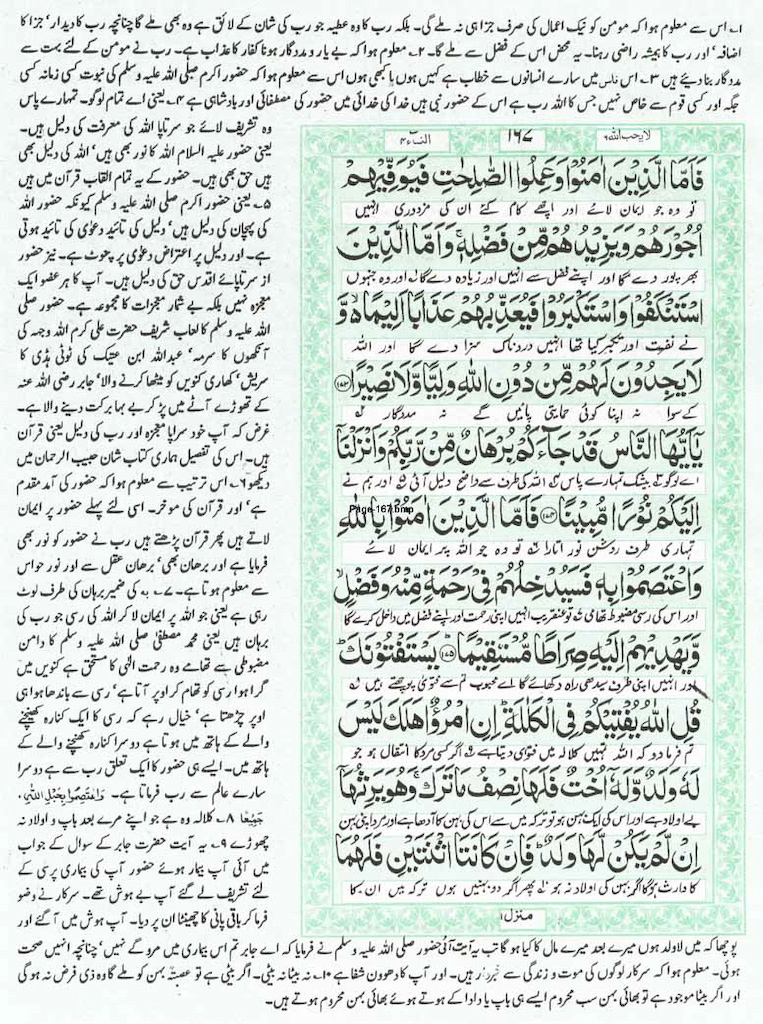 ۱۔ اس سے معلوم ہوا کہ مومن کو نیک اعمال کی صرف جزا ہی نہ ملے گی۔ بلکہ رب کا وہ عطیہ جو رب کی شان کے لائق ہے وہ بھی ملے گا چنانچہ رب کا دیدار' جزا کا
اضافہ' اور رب کا ہمیشہ راضی رہنا۔ یہ محض اس کے فضل سے ملے گا۔ ۲۔ معلوم ہوا کہ بے یار و مددگار ہونا کفار کا عذاب ہے۔ رب نے مومن کے لئے بہت سے
مددگار بنا دیئے ہیں ۳۔ اس میں سارے انسانوں سے خطاب ہے کہیں ہوں یا کبھی ہوں اس سے معلوم ہوا کہ حضور اکرم صلی اللہ علیہ وسلم کی نبوت کسی زمانہ کسی
جگہ اور کسی قوم سے خاص نہیں جس کا اللہ رب ہے اس کے حضور نبی ہیں خدا کی خدائی میں حضور کی مصطفائی اور بادشاہی ہے ۴۔ یعنی اے تمام لوگو۔ تمہارے پاس
وہ تشریف لائے جو سرتاپا اللہ کی معرفت کی دلیل ہیں۔
یعنی حضور علیہ السلام اللہ کا نور بھی ہیں' اللہ کی دلیل بھی
ہیں حق بھی ہیں۔ حضور کے یہ تمام القاب قرآن میں ہیں
۵۔ یعنی حضور اکرم صلی اللہ علیہ وسلم کیونکہ حضور اللہ
کی پہچان کی دلیل ہیں' دلیل کی تائید دعوٰی کی تائید ہوتی
ہے۔ اور دلیل پر اعتراض دعوٰی پر چوٹ ہے۔ نیز حضور
از سر تا پائے اقدس حق کی دلیل ہیں۔ آپ کا ہر عضو ایک
معجزہ نہیں بلکہ بے شمار معجزات کا مجموعہ ہے۔ حضور صلی
اللہ علیہ وسلم کا لعاب شریف حضرت علی کرم اللہ وجہہ کی
آنکھوں کا سرمہ' عبداللہ ابن عتیک کی ٹوٹی ہڈی کا
سریش' کھاری کنویں کو میٹھا کرنے والا' جابر رضی اللہ عنہ
کے تھوڑے آٹے میں پڑ کر بے بہا برکت دینے والا ہے۔
غرض کہ آپ خود سراپا معجزہ اور رب کی دلیل یعنی قرآن
ہیں۔ اس کی تفصیل ہماری کتاب شان حبیب الرحمان میں
دیکھو ۶۔ اس ترتیب سے معلوم ہوا کہ حضور کی آمد مقدم
ہے' اور قرآن کی موخر۔ اسی لئے پہلے حضور پر ایمان
لاتے ہیں پھر قرآن پڑھتے ہیں رب نے حضور کو نور بھی
فرمایا ہے اور برھان بھی' برھان عقل سے اور نور حواس
سے معلوم ہوتا ہے۔ ۷۔ بہ کی ضمیر برہان کی طرف لوٹ
رہی ہے یعنی جو اللہ پر ایمان لا کر اللہ کی رسی جو رب کی
برہان ہیں یعنی محمد مصطفٰی صلی اللہ علیہ وسلم کا دامن
مضبوطی سے تھامے وہ رحمت الٰہی کا مستحق ہے کنویں میں
گرا ہوا رسی کو تھام کر اوپر آتا ہے' رسی سے باندھا ہوا ہی
اوپر چڑھتا ہے' خیال رہے کہ رسی کا ایک کنارہ کھینچنے
والے کے ہاتھ میں ہوتا ہے دوسرا کنارہ کھنچنے والے کے
ہاتھ میں۔ ایسے ہی حضور کا ایک تعلق رب سے ہے دوسرا
سارے عالم سے رب فرماتا ہے۔ وَاعْتَصِمُوْا بِحَبْلِ اللّٰهِ
جَمِيْعًا ۸۔ کلالہ وہ ہے جو اپنے مرے بعد باپ و اولاد نہ
چھوڑے ۹۔ یہ آیت حضرت جابر کے سوال کے جواب
میں آئی آپ بیمار ہوئے حضور آپ کی بیمار پرسی کے
لئے تشریف لے گئے آپ بے ہوش تھے۔ سرکار نے وضو
فرما کر باقی پانی کا چھینٹا ان پر دیا۔ آپ ہوش میں آ گئے اور
لايحب الله ٦
١٦٧
النسآء ٤
فَاَمَّا الَّذِيْنَ اٰمَنُوْا وَعَمِلُوا الصّٰلِحٰتِ فَيُوَفِّيْهِمْ
تو وہ جو ایمان لائے اور اچھے کام کئے ان کی مزدوری انہیں
اُجُوْرَهُمْ وَيَزِيْدُهُمْ مِّنْ فَضْلِهٖ ۚ وَاَمَّا الَّذِيْنَ
بھرپور دے گا اور اپنے فضل سے انہیں اور زیادہ دے گا اور وہ جنہوں
اسْتَنْكَفُوْا وَاسْتَكْبَرُوْا فَيُعَذِّبُهُمْ عَذَابًا اَلِيْمًا ۙ وَّ
نے نفرت اور تکبر کیا تھا انہیں دردناک سزا دے گا اور اللہ
لَا يَجِدُوْنَ لَهُمْ مِّنْ دُوْنِ اللّٰهِ وَلِيًّا وَّلَا نَصِيْرًا ﴿۱۷۳﴾
کے سوا نہ اپنا کوئی حمایتی پائیں گے نہ مددگار
يٰٓاَيُّهَا النَّاسُ قَدْ جَآءَكُمْ بُرْهَانٌ مِّنْ رَّبِّكُمْ وَاَنْزَلْنَآ
اے لوگو بیشک تمہارے پاس اللہ کی طرف سے واضح دلیل آئی اور ہم نے
اِلَيْكُمْ نُوْرًا مُّبِيْنًا ﴿۱۷۴﴾ فَاَمَّا الَّذِيْنَ اٰمَنُوْا بِاللّٰهِ
Page-167.bmp
تمہاری طرف روشن نور اتارا تو وہ جو اللہ پر ایمان لائے
وَاعْتَصَمُوْا بِهٖ فَسَيُدْخِلُهُمْ فِيْ رَحْمَةٍ مِّنْهُ وَفَضْلٍ ۙ
اور اس کی رسی مضبوط تھامی تو عنقریب انہیں اپنی رحمت اور اپنے فضل میں داخل کرے گا
وَّيَهْدِيْهِمْ اِلَيْهِ صِرَاطًا مُّسْتَقِيْمًا ﴿۱۷۵﴾ يَسْتَفْتُوْنَكَ ؕ
اور انہیں اپنی طرف سیدھی راہ دکھائے گا اے محبوب تم سے فتوٰی پوچھتے ہیں
قُلِ اللّٰهُ يُفْتِيْكُمْ فِي الْكَلٰلَةِ ؕ اِنِ امْرُؤٌا هَلَكَ لَيْسَ
تم فرما دو کہ اللہ تمہیں کلالہ میں فتوٰی دیتا ہے اگر کسی مرد کا انتقال ہو جو
لَهٗ وَلَدٌ وَّلَهٗٓ اُخْتٌ فَلَهَا نِصْفُ مَا تَرَكَ ۚ وَهُوَ يَرِثُهَآ
بے اولاد ہے اور اس کی ایک بہن ہو تو ترکہ میں سے اس کی بہن کا آدھا ہے اور مرد اپنی بہن
اِنْ لَّمْ يَكُنْ لَّهَا وَلَدٌ ؕ فَاِنْ كَانَتَا اثْنَتَيْنِ فَلَهُمَا
کا وارث ہوگا اگر بہن کی اولاد نہ ہو پھر اگر دو بہنیں ہوں ترکہ میں ان کا
منزل ۱
پوچھا کہ میں لاولد ہوں میرے بعد میرے مال کا کیا ہو گا تب یہ آیت آئی حضور صلی اللہ علیہ وسلم نے فرمایا کہ اے جابر تم اس بیماری میں مرو گے نہیں' چنانچہ انہیں صحت
ہوئی۔ معلوم ہوا کہ سرکار لوگوں کی موت و زندگی سے خبردار ہیں۔ اور آپ کا دھوون شفا ہے ۱۰۔ نہ بیٹا نہ بیٹی۔ اگر بیٹی ہے تو عصبۃً بہن کو ملے گا وہ ذی فرض نہ ہو گی
اور اگر بیٹا موجود ہے تو بھائی بہن سب محروم ایسے ہی باپ یا دادا کے ہوتے ہوئے بھائی بہن محروم ہوتے ہیں۔